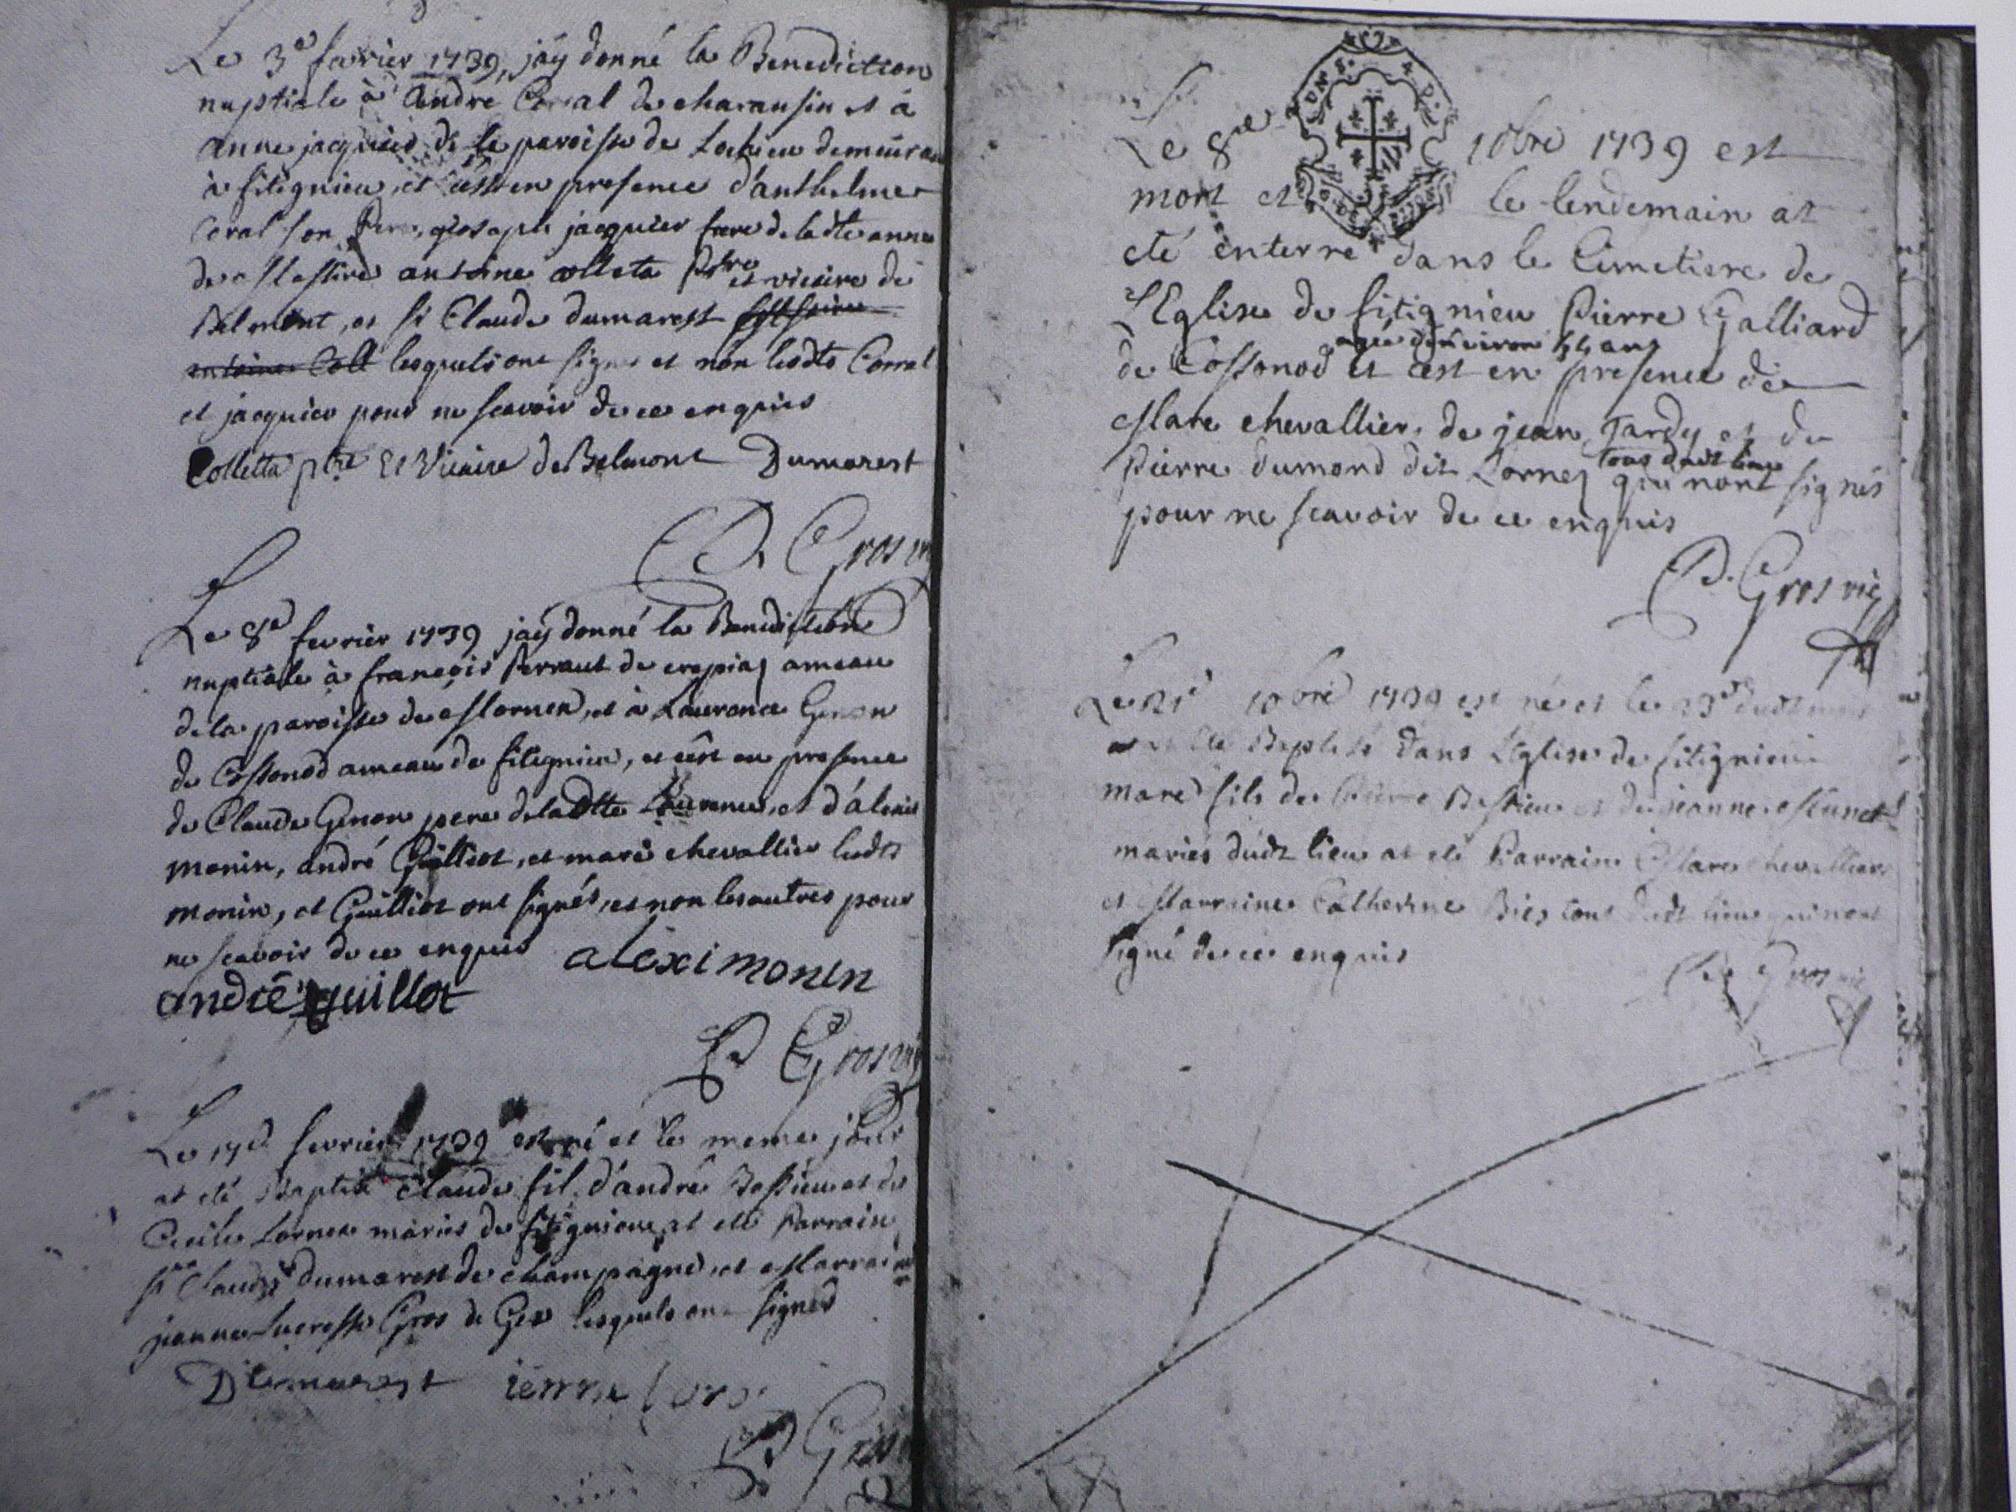 Le 3e fevrier 1739, jaÿ donné la Benediction
nuptiale à andre Corral de charansin et à
anne jacquier de la paroisse de Lochieu demeurant
à fitignieu, et c'est en presence d'anthelme
Coral son Pere, joseph jacquier frere de ladte anne
de Messire antoine colleta Ptre et vicaire de
Belmont, et Sr Claude dumarest
antoine Coll lesquels ont signé et non lesdts Corral
et jacquier pour ne scavoir de ce enquis
Colletta ptre Et Vicaire de Belmont Dumarest
P. Gros vic
Le 8e fevrier 1739 jaÿ donné la Benediction
nuptiale à françois Perraut de ameau
de la paroisse de Mornex, et à Laurence Genon
de Cossonod ameau de fitignieu, et c'est en presence
de Claude Genon pere de ladtte Laurence, et d'alexis
monin, andré Guilliot, et marc chevallier lesdts
monin, et Guilliot ont signés, et non les autres pour
ne scavoir de ce enquis alexi monin
andré guillot
P Gros vic
Le 17e fevrier 1739 est né et le meme jour
at eté Baptisé Claude fils d'andré Bessieu et de
Cecile Lornex mariés de fitignieu, at eté Parrain
sr Claude dumarest de champagne, et Marraine
jeanne Lucresse Gros de Gex lesquels ont signés
Dumarest Gros
P Gros
Le 8me 10bre 1739 est
mort et le lendemain at
eté enterré dans le Cimetiere de
l'Eglise de fitignieu Pierre Galliard
agé d'environ ans
de Cossonod et cest en presence de
Marc chevallier, de jean Tardy et de
tous dudt lieu
Pierre dumond dit Lornez qui n'ont signés
pour ne scavoir de ce enquis
P. Gros vic
Le 21e 10bre 1739 est né et le 23e dudt mois
at eté Baptisé dans l'Eglise de fitignieu
marc fils de Pierre Bessieu et de jeanne
mariés dudt lieu at eté Parrain Marc chevallier
et Marraine Catherine tous dudt lieu qui n'ont
signé de ce enquis
P. Gros vic